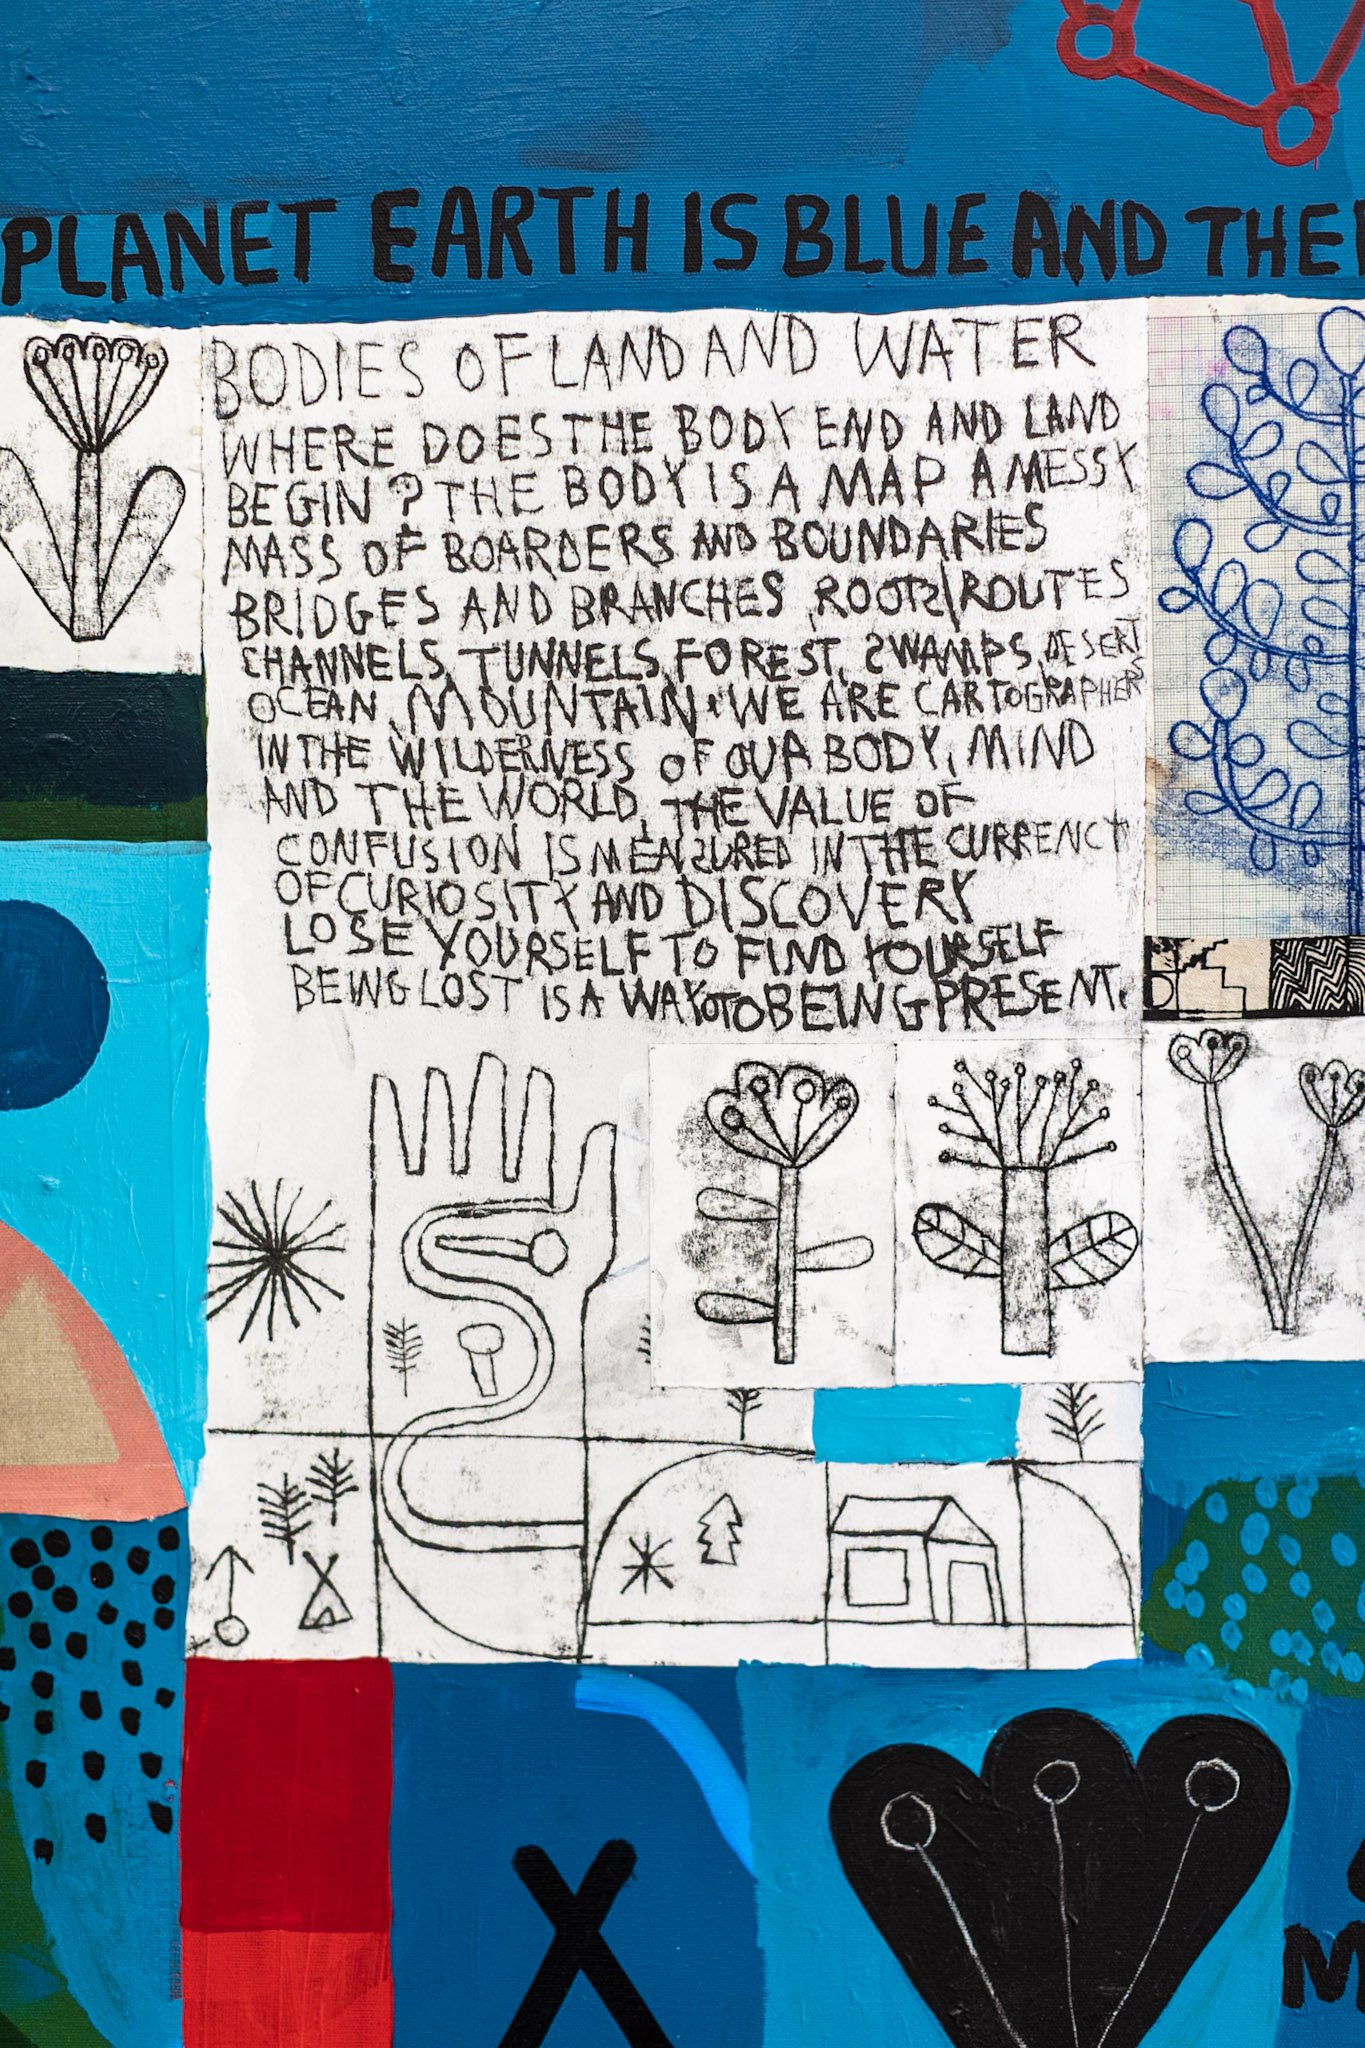 PLANET EARTH IS BLUE AND THE
BODIES OF LAND AND WATER
WHERE DOES THE BODY END AND LAND
BEGIN? THE BODY IS A MAP A MESSY
MASS OF BOARDERS AND BOUNDARIES
BRIDGES AND BRANCHES, ROOTS/ROUTES
CHANNELS, TUNNELS, FOREST, SWAMPS, DESERT
OCEAN, MOUNTAIN. WE ARE CARTOGRAPHERS
IN THE WILDERNESS OF OUR BODY, MIND
AND THE WORLD, THE VALUE OF
CONFUSION IS MEASURED IN THE CURRENCY
OF CURIOSITY AND DISCOVERY
LOSE YOURSELF TO FIND YOURSELF
BEING LOST IS A WAY TO BEING PRESENT.